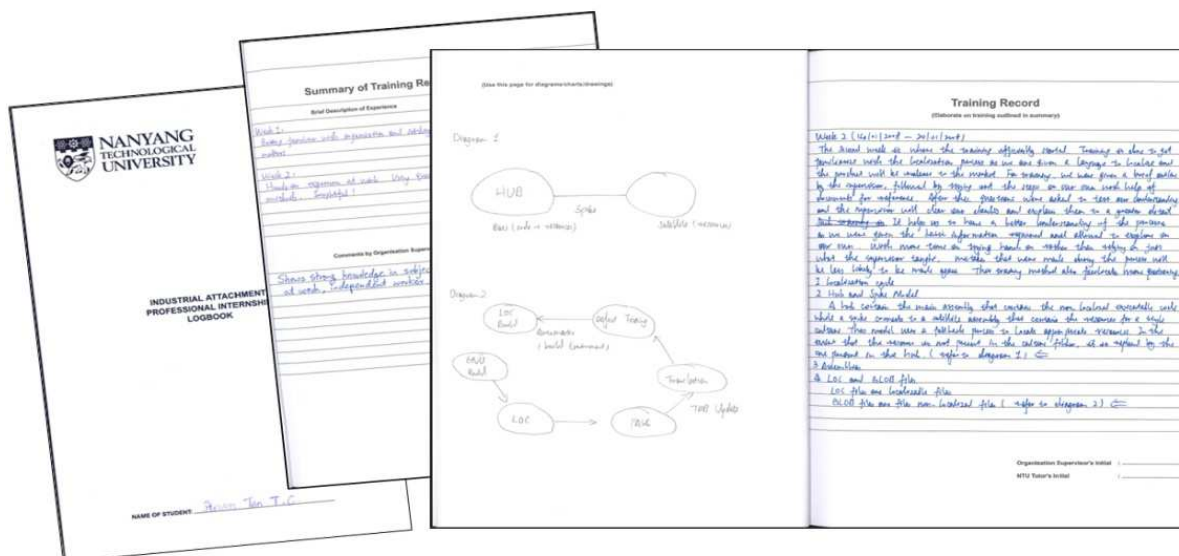 NANYANG
TECHNOLOGICAL
UNIVERSITY
INDUSTRIAL ATTACHMENT
PROFESSIONAL INTERNSHIP
LOGBOOK
NAME OF STUDENT: Tan T.C.
Summary of Training Re
Brief Description of Experience
Week 1.
with organisation and
matters
Week 2.
Hands-on experience at work. Using
methods. Insightful!
Comments by Organisation Superv
Shows strong knowledge in subjec
at work, independent worker
(Use this page for diagrams/charts/drawings)
Diagram 1
HUB
Spoke
Satellite (resources)
Diagram 2
LOC
Build
(build command)
Build
Translation
LOC
Update
Training Record
(Elaborate on training outlined in summary)
Week 2
The second week is where the training officially started. Training is done to get
with the localisation process as we are given a language to localise and
the product will be to the market. For training, we were given a brief
by the supervisor, followed by trying out the steps on our own with help of
documents for reference. After that questions were asked to test our understanding
and the supervisor will clear our doubts and explain them to a greater
It helps us to have a better understanding of the process
as we were given the basic information required and allowed to explore on
our own. With more time on trying hands on rather than relying on just
what the supervisor taught, mistakes that were made during the process will
be less likely to be made again. This training method also
1 Localisation cycle
2 Hub and Spoke Model
A hub contains the main assembly that contains the non localised executable code
while a spoke connects to a satellite assembly that contains the resources for a single
culture. This model uses a fallback process to locate appropriate resources. In the
event that the resource is not present in the culture folder, is replaced by the
one present in the hub. (refer to diagram 1)
3 Assemblies
4 LOC and files
LOC files are localisable files
files are files non-localised files (refer to diagram 2)
Organisation Supervisor's Initial :
NTU Tutor's Initial :